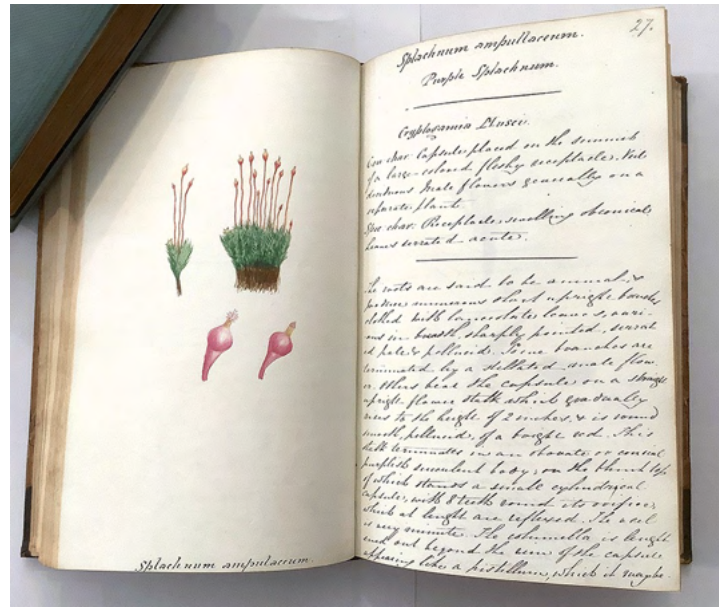 Splachnum ampullaceum.
27.
Splachnum ampullaceum.
Purple Splachnum.
Cryptogamia Musci.
Gen char: Capsule placed on the summit
of a large colored fleshy receptacle. Veil
Male flowers generally on a
separate plant.
Spe char: Receptacle, swelling obconical
Leaves serrated acute.
The roots are said to be annual, &
produce numerous short upright branches,
clothed with lanceolate leaves, vari-
ous in breadth, sharply pointed, serrat
ed, pale & pellucid. Some branches are
terminated by a stellated male flow-
er. Others bear the capsule on a straight
upright flower stalk which gradually
rises to the height of 2 inches, & is round
smooth, pellucid, of a bright red. This
stalk terminates in an obovate or conical
purplish succulent body, on the blunt top
of which stands a small cylindrical
capsule, with 8 teeth round its orifice,
which at length are reflexed. The veil
is very minute. The columella is length
ened out beyond the rim of the capsule
appearing like a pistillum, which it maybe